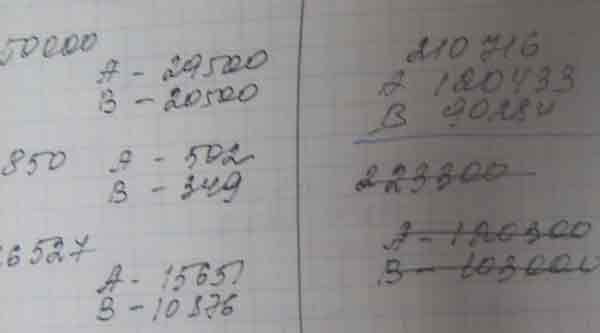 50000
А - 29500
В - 20500
850
А - 502
В - 349
6527
А - 15651
В - 10876
210716
А 120433
В 90284
223300
А - 120300
В - 103000